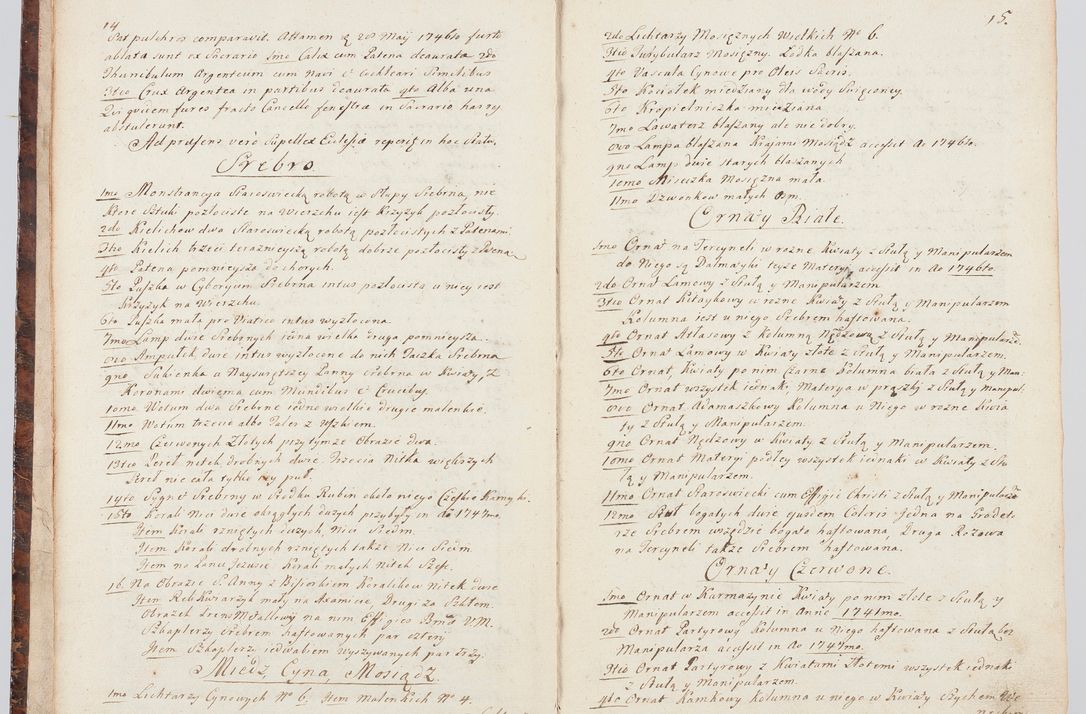 14
Pat pulchris comparavit. Attamen 28 Maij 1746to furto
ablata sunt ex Sacrario 1mo Calix cum Patena deaurata 2do
Thuribulum Argenteum cum Navi et Cochleari Similibus
3tio Crux Argentea in partibus deaurata 4to Alba una
Qui quidem fures fracto Cancello fenestræ in Sacrario
abstulerunt.
Ad præsens verò Supellex Eclesiæ reperiz in hoc Statu.
Srebro.
1mo Monstrancya Staroswiecką robotą w Słupy Srebrna, nie
ktore Sztuki pozłociste na Wierzchu iest Krzyżyk pozłocisty.
2do Kielichow dwa Staroswiecką robotą pozłocistych z Patenami
3tio Kielich trzeci teraznieyszą robotą dobrze pozłocisty z Pateną
4to Patena pomnieysza do chorych.
5to Puszka w Cyboryum Srebrna intus pozłocista u niey iest
Krzyżyk na Wierzchu.
6to Puszka mała pro Viatico intus wyzłocona.
7mo Lamp dwie Srebrnych iedna wielka druga pomnieysza.
8vo Ampułek dwie intus wyzłocone do nich Taczka Srebrna
9no Sukienka u Nayswiętszey Panny Srebrna w Kwiaty, z
Koronami dwiema cum Mundibus et Crucibus.
10mo Wotum dwa Srebrne iedno wielkie drugie malenkie.
11mo Wotum trzecie albo Palec z Uszkiem.
12mo Czerwonych Złotych przytymże Obrazie dwa.
13tio Pereł nitek drobnych dwie. Trzecia Nitka większych
Pereł nie cała tylko puł.
14to Sygnet Srebrny w Srodku Rubin około niego Czeskie Kamyki
15to Korali Nici dwie okrągłych dużych przybyły in Ao 1747mo.
Item Korali rzniętych dużych Nici Siedm.
Item Korali drobnych rzniętych także Nici Siedm
Item na Panu Jezusie Korali małych Nitek Sześć.
16. Na Obrazie S. Anny z Bisiorkiem Koralikow nitek dwie
Item Relikwiarzyk mały na Axamicie, Drugi za Szkłem.
Obrazek Metallowy na nim Effigies Bmæ V.M.
Szkaplerzy Srebrem haftowanych par cztery
Item Szkaplerzy iedwabiem wyszywanych par trzy.
Miedz, Cyna, Mosiądz.
1mo Lichtarzy Cynowych No 6. Item Malenkich No 4.
15.
2do Lichtarzy Mosięznych Wielkich No 6.
3tio Turybularz Mosięzny. Łodka blaszana.
4to Vascula Cynowe pro Oleis Sacris.
5to Kociołek miedziany dla wody Swięconey.
6to Kropielniczka miedziana
7mo Lawaterz blaszany ale nie dobry.
8vo Lampa blaszana Krajami Mosiądz accessit A 1746to.
9no Lamp dwie starych blaszanych
10mo Miseczka Mosięzna mała.
11mo Dzwonkow małych
Ornaty Białe.
1mo Ornat na Tercyneli w rozne Kwiaty z Stułą y Manipularzem
do Niego są Dalmatyki teyże Materyi accessit in Ao 1746to.
2do Ornat Lamowy z Stułą y Manipularzem
3tio Ornat Kitaykowy w rozne Kwiaty z Stułą y Manipularzem
Kolumna iest u niego Srebrem haftowana.
4to Ornat Atlasowy z Kolumną Nędzową z Stułą y Manipularze.
5to Ornat Lamowy w Kwiaty złote z Stułą y Manipularzem.
6to Ornat, Kwiaty po nim Czarne Kolumna biała z Stułą y Man:
7mo Ornat wszystek iednaki Materya w prążki z Stułą y Manipul:
8vo Ornat Adamaszkowy Kolumna u Niego w rozne Kwia
ty z Stułą y Manipularzem.
9no Ornat Nędzowy w Kwiaty z Stułą y Manipularzem.
10mo Ornat Materyi podłey wszystek iednaki w Kwiaty z Stu
łą y Manipularzem.
11mo Ornat Staroswiecki cum Effigie Christi z Stułą y Manipularze
12mo Stuł bogatych dwie ejusdem Coloris Jedna na Grodet:
rze Srebrem wszędzie bogato haftowana, Druga Rozowa
na Tercyneli także Srebrem haftowana.
Ornaty Czerwone.
1mo Ornat w Karmazynie Kwiaty po nim złote z Stułą y
Manipularzem accessit in Anno 1741mo.
2do Ornat Partyrowy Kolumna u Niego haftowana z Stułą bez
Manipularza accessit in Ao 1747mo.
3tio Ornat Partyrowy z Kwiatami Złotemi wszystek iednaki
z Stułą y Manipularzem.
4to Ornat Kamkowy Kolumna u niego w Kwiaty Srychem